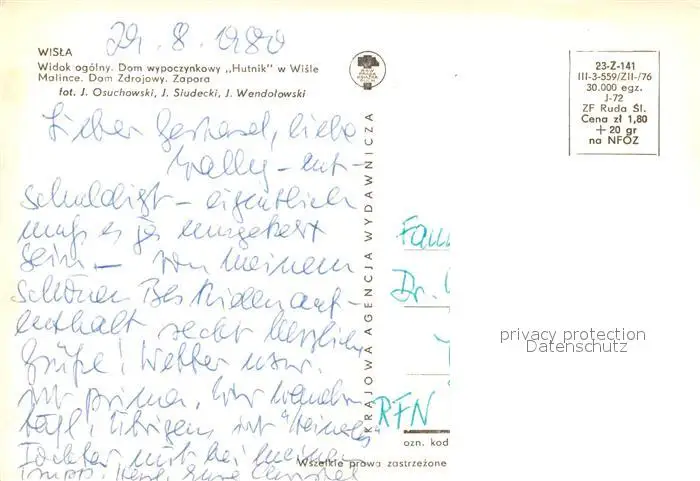 WISŁA
29.8.1980
Widok ogólny. Dom wypoczynkowy „Hutnik” w Wiśle
Malince. Dom Zdrojowy. Zapora
fot. J. Osuchowski, J. Siudecki, J. Wendołowski
Lieber Gerhard, liebe
Wally – ent-
schuldigt – eigentlich
muß es ja umgekehrt
sein – von meinem
schönen Beskidenauf-
enthalt recht herzliche
Grüße! Wetter
ist prima, wir
Übrigens ist
Tochter mit bei meiner
KRAJOWA AGENCJA WYDAWNICZA
23-Z-141
III-3-559/ZII-/76
30.000 egz.
J-72
ZF Ruda Śl.
Cena zł 1,80
+ 20 gr
na NFOZ
Fam
Dr.
RFN
ozn. kod
Wszelkie prawa zastrzeżone
privacy protection
Datenschutz